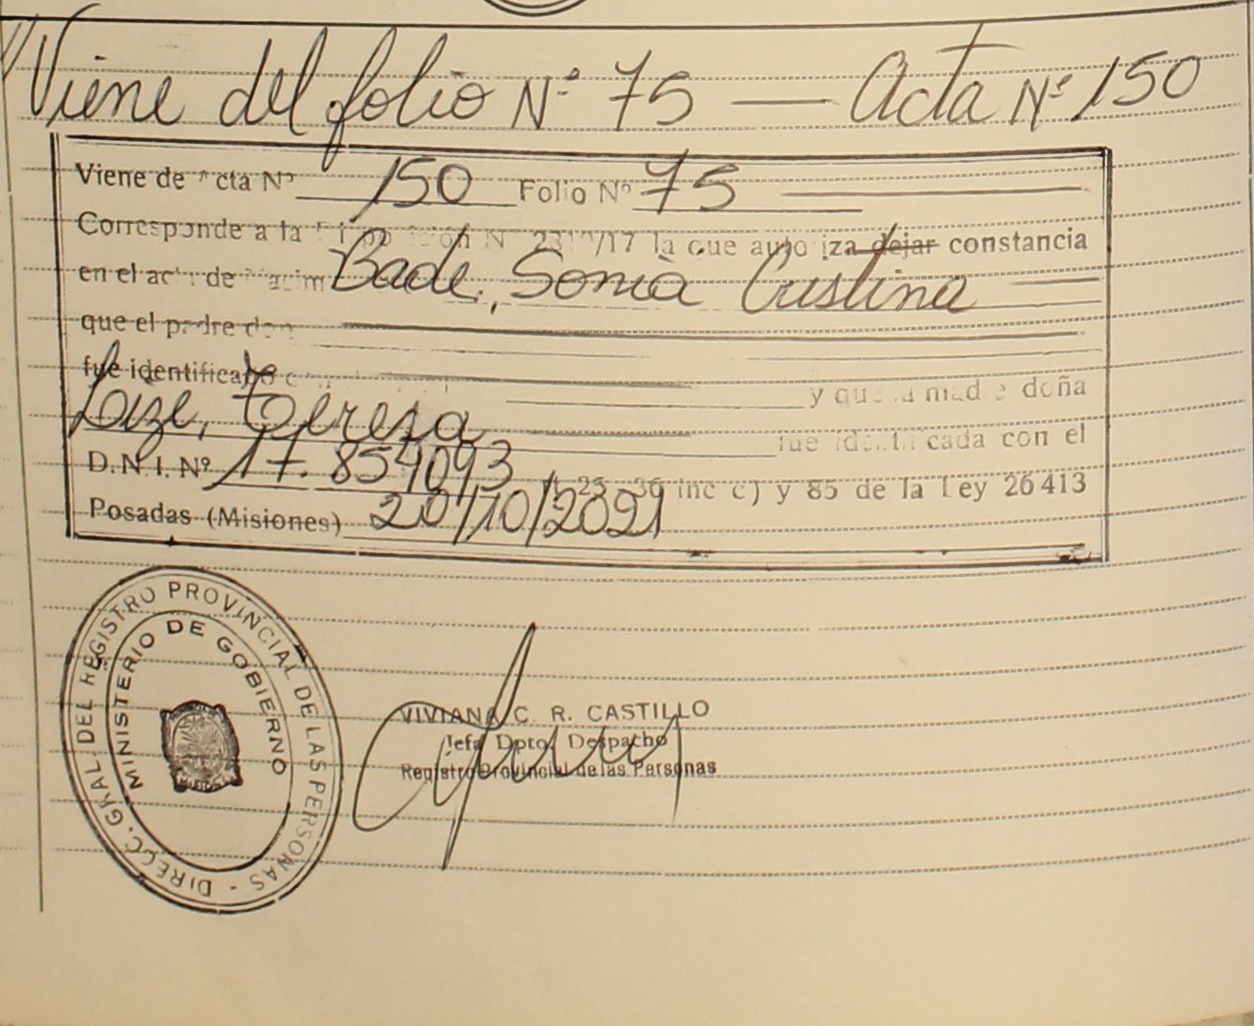 Viene del folio Nº 75 — Acta Nº 150
Viene de Acta Nº 150 Folio Nº 75
Corresponde a la Nº /17 la que autoriza dejar constancia
en el acta de Bade, Sonia Cristina
que el padre don
fue identificado y que la madre doña
Teresa fue identificada con el
D.N.I. Nº 17.854093 inc c) y 85 de la Ley 26413
Posadas (Misiones) 20/10/2021
DIRECC. GRAL. DEL REGISTRO PROVINCIAL DE LAS PERSONAS -
MINISTERIO DE GOBIERNO
VIVIANA C. R. CASTILLO
Jefa Dpto. Despacho
Registro Provincial de las Personas